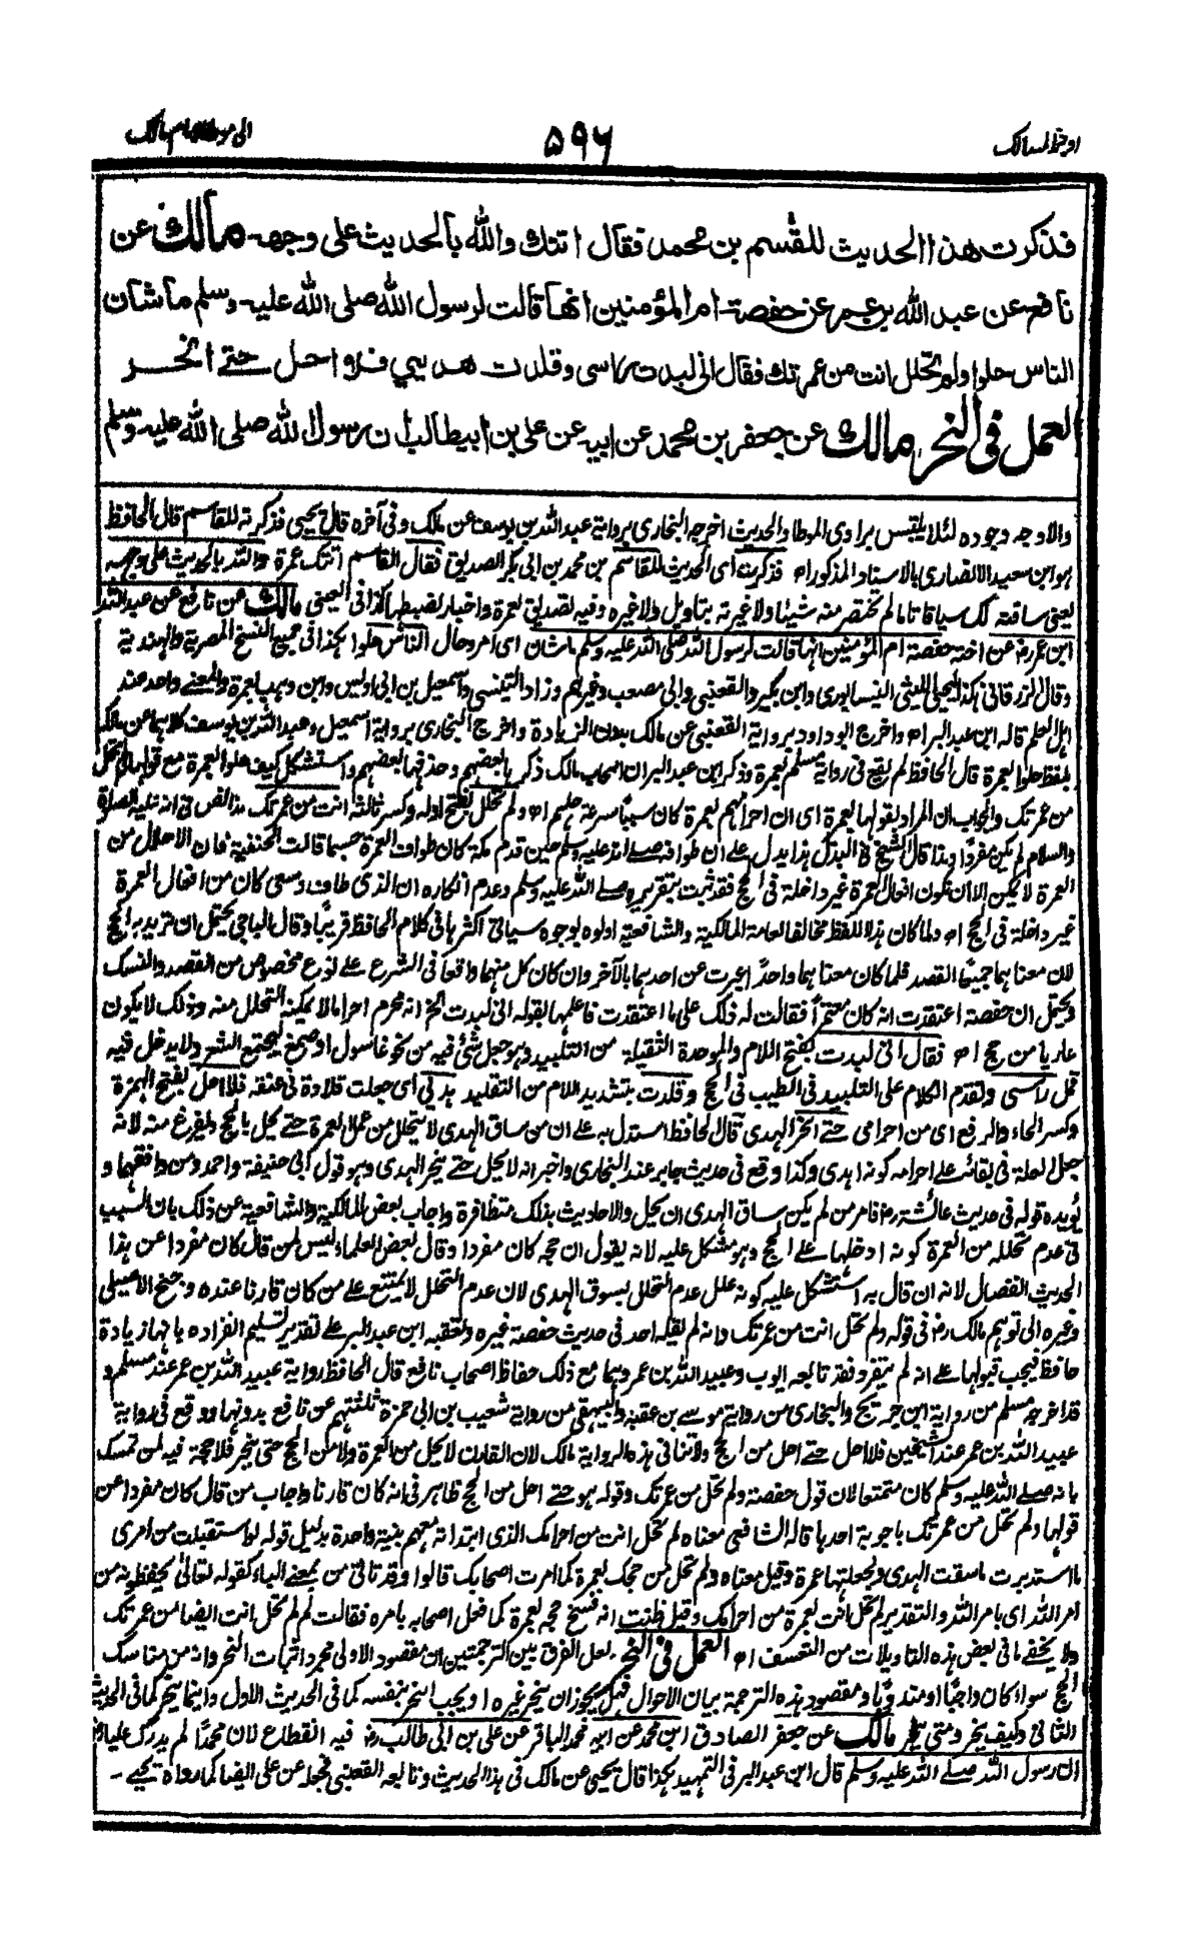 اوجز المسالك
۵۹۶
الى موطا امام مالك
فذكرت هذا الحديث للقسم بن محمد فقال اتتك والله بالحديث على وجهه مالك عن
نافع عن عبد الله بن عمر عن حفصة ام المؤمنين انها قالت لرسول الله صلى الله عليه وسلم ما شان
الناس حلوا ولم تحلل انت من عمرتك فقال انى لبدت راسى وقلدت هديي فلا احل حتى انحر
العمل فى النحر مالك عن جعفر بن محمد عن ابيه عن على بن ابيطالب ان رسول الله صلى الله عليه وسلم
والاوجه وجوده لئلا يلتبس براوى الموطا والحديث اخرجه البخارى برواية عبد الله بن يوسف عن مالك وفى آخره قال يحيى فذكرته للقاسم قال الحافظ
هو ابن سعيد الانصارى بالاسناد المذكور اه فذكرت اى الحديث للقاسم بن محمد بن ابى بكر الصديق فقال القاسم اتتك عمرة والله بالحديث على وجهه
يعنى ساقته لك سياقا تاما لم تختصر منه شيئا ولا غيرته بتاويل ولا غيره وفيه تصديق لعمرة واخبار لضبطها كذا فى العينى مالك عن نافع عن عبد الله
ابن عمر رض عن اخته حفصة ام المؤمنين انها قالت لرسول الله صلى الله عليه وسلم ما شان اى امر وحال الناس حلوا هكذا فى جميع النسخ المصرية والهندية
وقال الزرقانى هكذا ليحيى الليثى النيسابورى وابن بكير والقعنبى وابى مصعب وغيرهم وزاد التنيسى واسمعيل بن ابى اويس وابن وهب بعمرة والمعنى واحد عند
اهل العلم قاله ابن عبد البر اه واخرج ابو داود برواية القعنبى عن مالك بدون الزيادة واخرج البخارى برواية اسمعيل وعبد الله بن يوسف كلاهما عن مالك
بلفظ حلوا بعمرة قال الحافظ لم يقع فى رواية مسلم بعمرة وذكر ابن عبد البر ان اصحاب مالك ذكرها بعضهم وحذفها بعضهم واستشكل كيف حلوا بعمرة مع قولها ولم تحل
من عمرتك والجواب ان المراد بقولها بعمرة اى ان احرامهم بعمرة كان سببا لسرعة حلهم اه ولم تحلل بفتح اوله وكسر ثالثه انت من عمرتك هذا نص فى انه عليه الصلوة
والسلام لم يكن مفردا وبذا قال الشيخ فى البذل هذا يدل على ان طوافه صلى الله عليه وسلم حين قدم مكة كان طواف العمرة حسبما قالت الحنفية فان الاحلال من
العمرة لا يكن الا ان تكون افعال العمرة غير داخلة فى الحج فقد ثبت بتقريره صلى الله عليه وسلم وعدم انكاره ان الذى طاف وسعى كان من افعال العمرة
غير داخلة فى الحج اه ولما كان هذا اللفظ مخالفا لعامة المالكية والشافعية اولوه بوجوه سياتى اكثرها فى كلام الحافظ قريبا وقال الباجى يحتمل ان تريد به الحج
لان معناهما جميعا القصد فلما كان معناهما واحدا عبرت عن احدهما بالآخر وان كان كل منهما واقعا فى الشرع على نوع مخصوص من القصد والنسك
ويحتمل ان حفصة اعتقدت انه كان معتمرا فقالت له ذلك على ما اعتقدت فاعلمها بقوله انى لبدت الخ انه محرم احراما لا يمكنه التحلل منه وذلك لا يكون
عاريا من حج اه فقال انى لبدت بفتح اللام والموحدة الثقيلة من التلبيد وهو جعل شئ فيه من نحو غاسول او صمغ ليجتمع الشعر ولا يدخل فيه
قمل راسى وتقدم الكلام على التلبيد فى الطيب فى الحج وقلدت بتشديد اللام من التقليد هديى اى جعلت قلادة فى عنقه فلا احل بفتح الهمزة
وكسر الحاء والرفع اى من احرامى حتى انحر الهدى قال الحافظ استدل به على ان من ساق الهدى لا يتحلل من عمل العمرة حتى يحل بالحج ويفرغ منه لانه
جعل العلة فى بقائه على احرامه كونه اهدى وكذا وقع فى حديث جابر عند البخارى واخبر انه لا يحل حتى ينحر الهدى وهو قول ابى حنيفة واحمد ومن وافقهما و
يؤيده قوله فى حديث عائشة رض فامر من لم يكن ساق الهدى ان يحل والاحاديث بذلك متظافرة واجاب بعض المالكية والشافعية عن ذلك بان السبب
فى عدم تحلله من العمرة كونه ادخلها على الحج وهو مشكل عليه لانه يقول ان حجه كان مفردا وقال بعض العلماء ليس لمن قال كان مفردا عن هذا
الحديث انفصال لانه ان قال به استشكل عليه كونه علل عدم التحلل بسوق الهدى لان عدم التحلل لا يمتنع على من كان قارنا عنده وجنح الاصيلى
وغيره الى توهيم مالك رض فى قوله ولم تحل انت من عمرتك وانه لم يقله احد فى حديث حفصة غيره وتعقبه ابن عبد البر على تقدير تسليم انفراده بانها زيادة
حافظ فيجب قبولها على انه لم ينفرد فقد تابعه ايوب وعبيد الله بن عمر وهما مع ذلك حفاظ اصحاب نافع قال الحافظ رواية عبيد الله بن عمر عند مسلم و
قد اخرجه مسلم من رواية ابن جريج والبخارى من رواية موسى بن عقبة والبيهقى من رواية شعيب بن ابى حمزة ثلثتهم عن نافع بدونها ووقع فى رواية
عبيد الله بن عمر عند الشيخين فلا احل حتى احل من الحج ولا تنافى هذه لرواية مالك لان القارن لا يحل من العمرة ولا من الحج حتى ينحر فلا حجة فيه لمن تمسك
بانه صلى الله عليه وسلم كان متمتعا لان قول حفصة ولم تحل من عمرتك وقوله هو حتى احل من الحج ظاهر فى انه كان قارنا واجاب من قال كان مفردا عن
قولها ولم تحل من عمرتك باجوبة احدها قاله الشافعى معناه لم تحل انت من احرامك الذى ابتداته معهم بنية واحدة بدليل قوله لو استقبلت من امرى
ما استدبرت ما سقت الهدى ولجعلتها عمرة وقيل معناه ولم تحل من حجك بعمرة كما امرت اصحابك قالوا وقد تاتى من بمعنى الباء كقوله تعالى يحفظونه من
امر الله اى بامر الله والتقدير لم تحل انت بعمرة من احرامك وقيل ظنت انه فسخ حجه بعمرة كما فعل اصحابه بامره فقالت لم لم تحل انت ايضا من عمرتك
ولا يخفى ما فى بعض هذه التاويلات من التعسف اه العمل فى النحر لعل الفرق بين الترجمتين ان مقصود الاولى مجرد اثبات النحر وانه من مناسك
الحج سواء كان واجبا او مندوبا ومقصود هذه الترجمة بيان الاحوال فيه يجوز ان ينحر غيره او يجب النحر بنفسه كما فى الحديث الاول واينما ينحر كما فى الحديث
الثانى وكيف ينحر ومتى ينحر مالك عن جعفر الصادق ابن محمد عن ابيه محمد الباقر عن على بن ابى طالب رض فيه انقطاع لان محمدا لم يدرك عليا رض
ان رسول الله صلى الله عليه وسلم قال ابن عبد البر فى التمهيد هكذا قال يحيى عن مالك فى هذا الحديث وتابعه القعنبى فجعله عن على ايضا كما رواه يحيى -